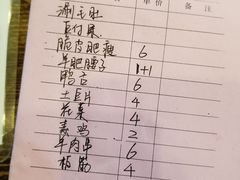 单价 备注
涮毛肚
巨付尿
脆皮肥瘦 6
羊肥腰子 1+1
鸭舌 6
土豆片 4
花菜 4
素鸡 2
羊肉串 6
板筋 4